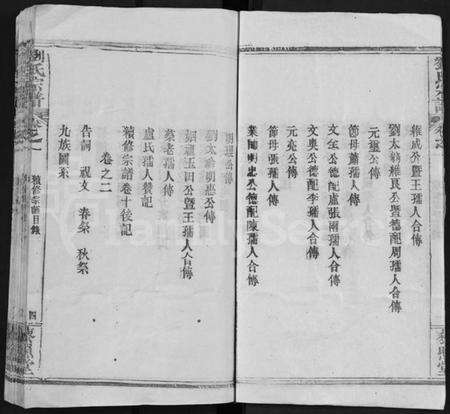 維成公暨王孺人合傳
劉太翁維良公暨德配周孺人合傳
元璽公傳
節母蕭孺人傳
文全公德配盧張兩孺人合傳
文奧公德配李孺人合傳
元亮公傳
節母張孺人傳
業師明忠公德配陳孺人合傳
明現公傳
劉太翁明忠公傳
公暨王孺人合傳
老孺人傳
盧氏孺人贊記
續修宗譜卷十後記
卷之二
告詞 祝文 春祭 秋祭
九族圖系
劉氏宗譜
續修宗譜目錄
四